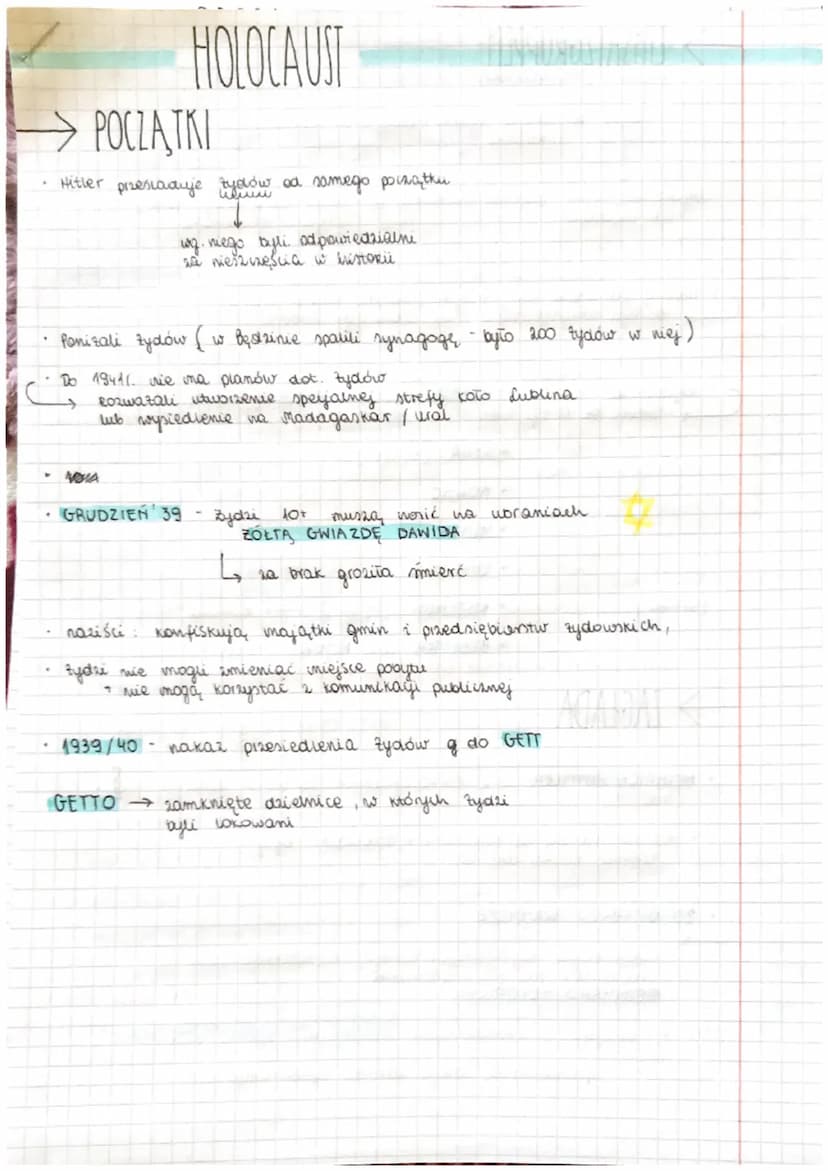 HOLOCAUST
→ POCZĄTKI
• Hitler prześladuje żydów od samego początku
↓
wg. niego byli odpowiedzialni
za nieszczęścia w historii
• Poniżali żydów ( w Będzinie spalili synagogę - było 200 żydów w niej )
• Do 1941r. nie ma planów dot. żydów
→ rozważali utworzenie specjalnej strefy koło Lublina
lub wysiedlenie na Madagaskar / Ural
• GRUDZIEŃ '39 - żydzi 10+ muszą nosić na ubraniach
ŻÓŁTĄ GWIAZDĘ DAWIDA
↳ za brak groziła śmierć
• naziści : konfiskują majątki gmin i przedsiębiorstw żydowskich,
• żydzi nie mogli zmieniać miejsce pobytu
+ nie mogą korzystać z komunikacji publicznej
• 1939/40 - nakaz przesiedlenia żydów do GETT
GETTO → zamknięte dzielnice , w których żydzi
byli lokowani